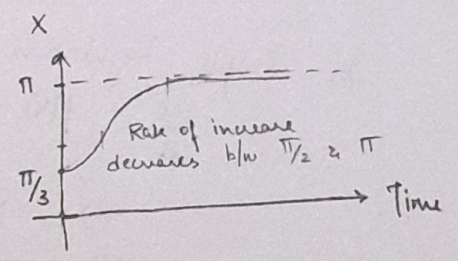 X
π
Rate of increase
decreases b/w π/2 & π
π/3
Time